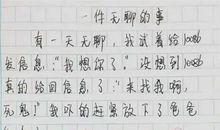 一件无聊的事
有一天无聊，我试着给10086
发信息："我想你了。"没想到10086
真的给回信息了："来找我啊，
死鬼！"我吓的赶紧放下了爸爸